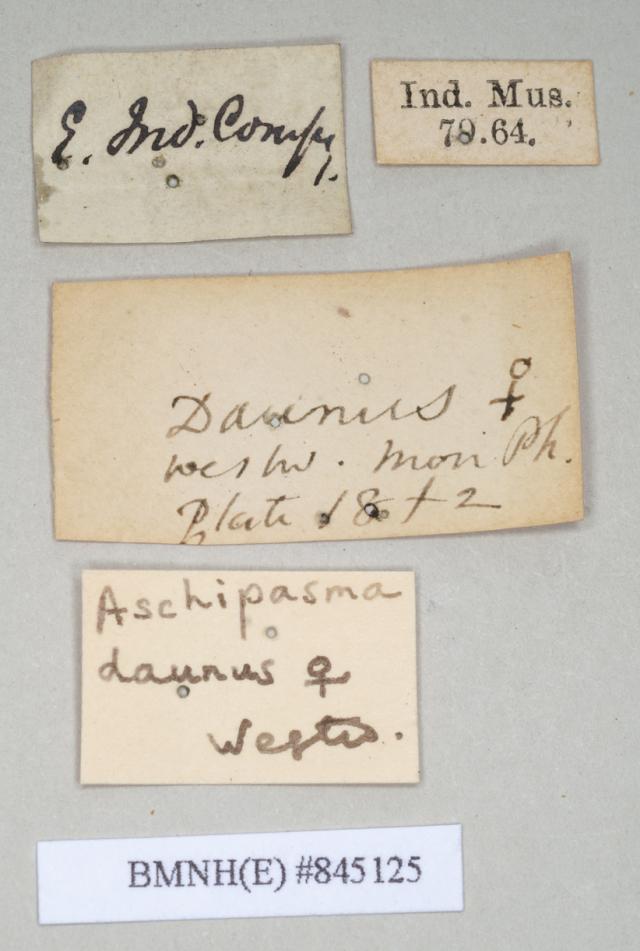 E. Ind. Compy.
Ind. Mus.
79.64.
Daunus ♀
Westw. Mon Ph.
Plate 18 f 2
Aschipasma
daunus ♀
Westw.
BMNH(E) #845125